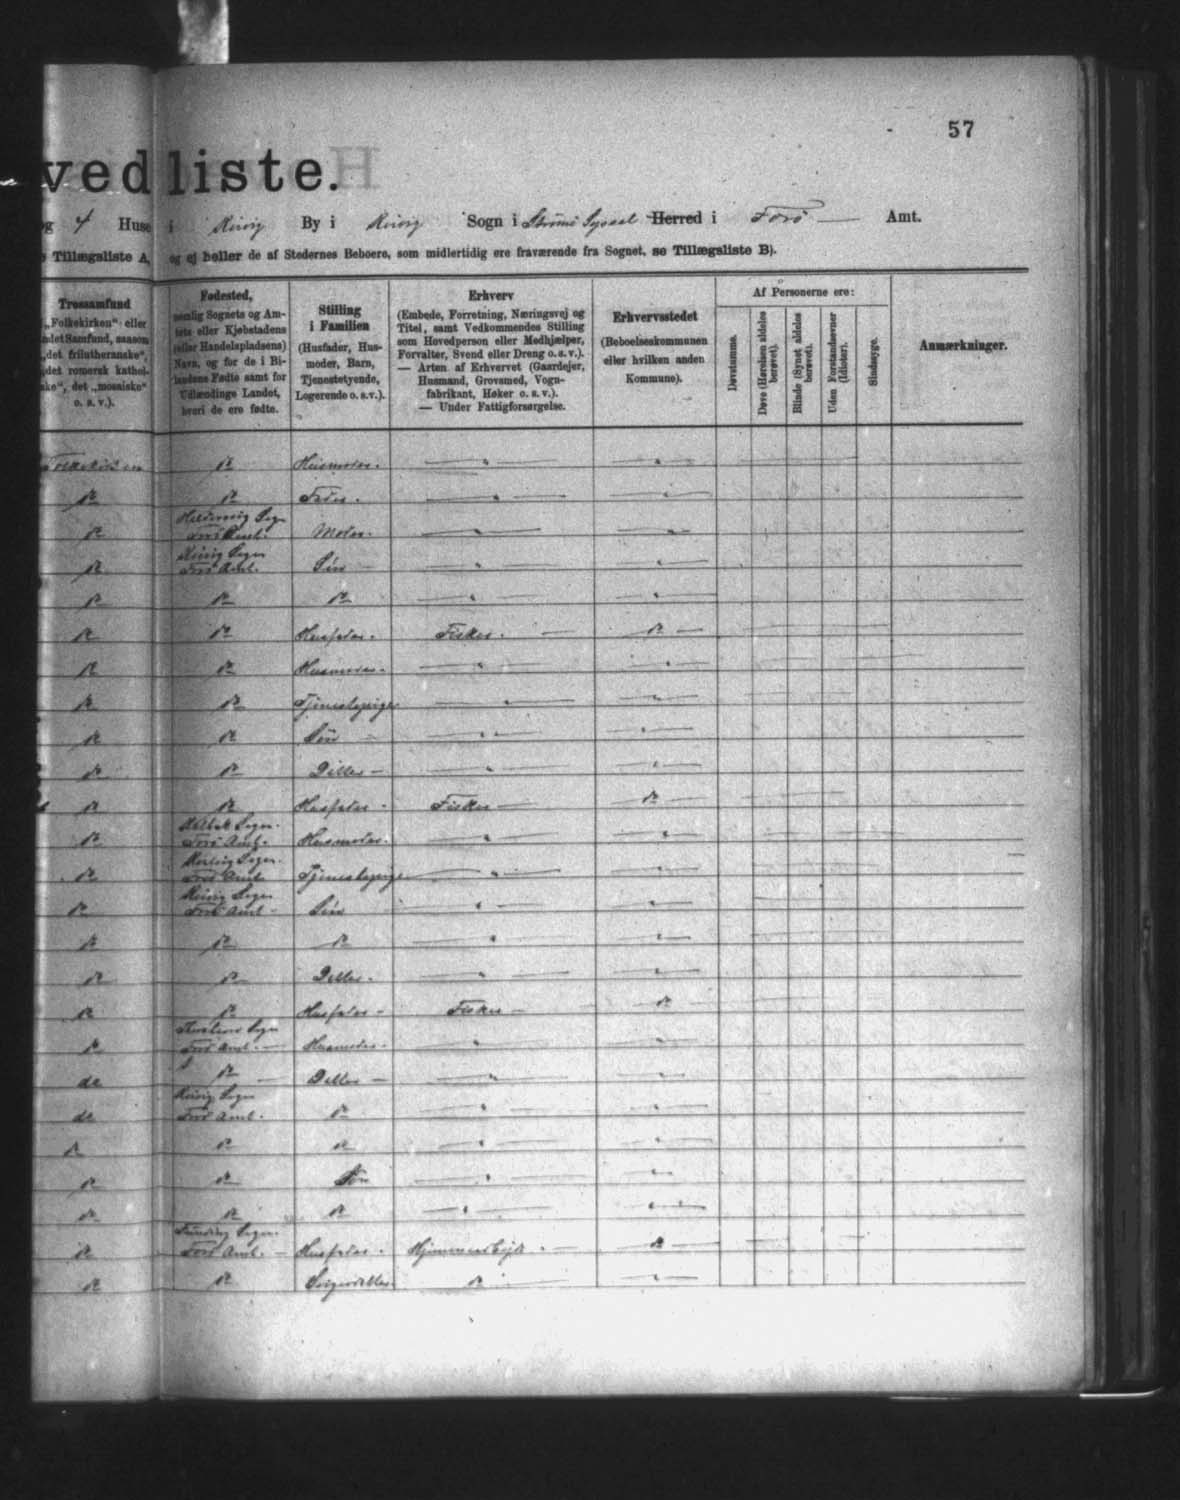 57
vedliste.
og 4 Huse i Reivig By i Reivig Sogn i Strömö Syssel Herred i Forö Amt.
Tillægsliste A, og ej heller de af Stedernes Beboere, som midlertidig ere fraværende fra Sognet, se Tillægsliste B).
Trossamfund
„Folkekirken“ eller
andet Samfund, saasom
„det frilutheranske“,
„det romersk kathol-
ske“, det „mosaiske“
o. s. v.).
Fødested,
nemlig Sognets og Am-
tets eller Kjøbstadens
(eller Handelspladsens)
Navn, og for de i Bi-
landene Fødte samt for
Udlændinge Landet,
hvori de ere fødte.
Stilling
i Familien
(Husfader, Hus-
moder, Barn,
Tjenestetyende,
Logerende o. s. v.).
Erhverv
(Embede, Forretning, Næringsvej og
Titel, samt Vedkommendes Stilling
som Hovedperson eller Medhjælper,
Forvalter, Svend eller Dreng o. s. v.).
— Arten af Erhvervet (Gaardejer,
Husmand, Grovsmed, Vogn-
fabrikant, Høker o. s. v.).
— Under Fattigforsørgelse.
Erhvervsstedet
(Beboelseskommunen
eller hvilken anden
Kommune).
Af Personerne ere:
Døvstumme.
Døve (Hørelsen aldeles
berøvet).
Blinde (Synet aldeles
berøvet).
Uden Forstandsevner
(Idioter).
Sindssyge.
Anmærkninger.
Folkekirken do Husmoder.
do do Fader.
Sogn
do Forö Amt. Moder.
Reivig Sogn
do Forö Amt. Sön
do do do
do do Husfader. Fisker. do
do do Husmoder.
do do Tjenestepige
do do Sön
do do Datter
do do Husfader Fisker do
Sogn.
do Forö Amt. Husmoder.
Sogn.
do Forö Amt. Tjenestepige
Reivig Sogn
do Forö Amt Sön
do do do
do do Datter.
do do Husfader Fisker do
Sogn
do Forö Amt. Husmoder.
do do Datter
Reivig Sogn
do Forö Amt. do
do do do
do do Sön
do do do
Funding Sogn.
do Forö Amt. Husfader.  do
do do Svigerdatter. do